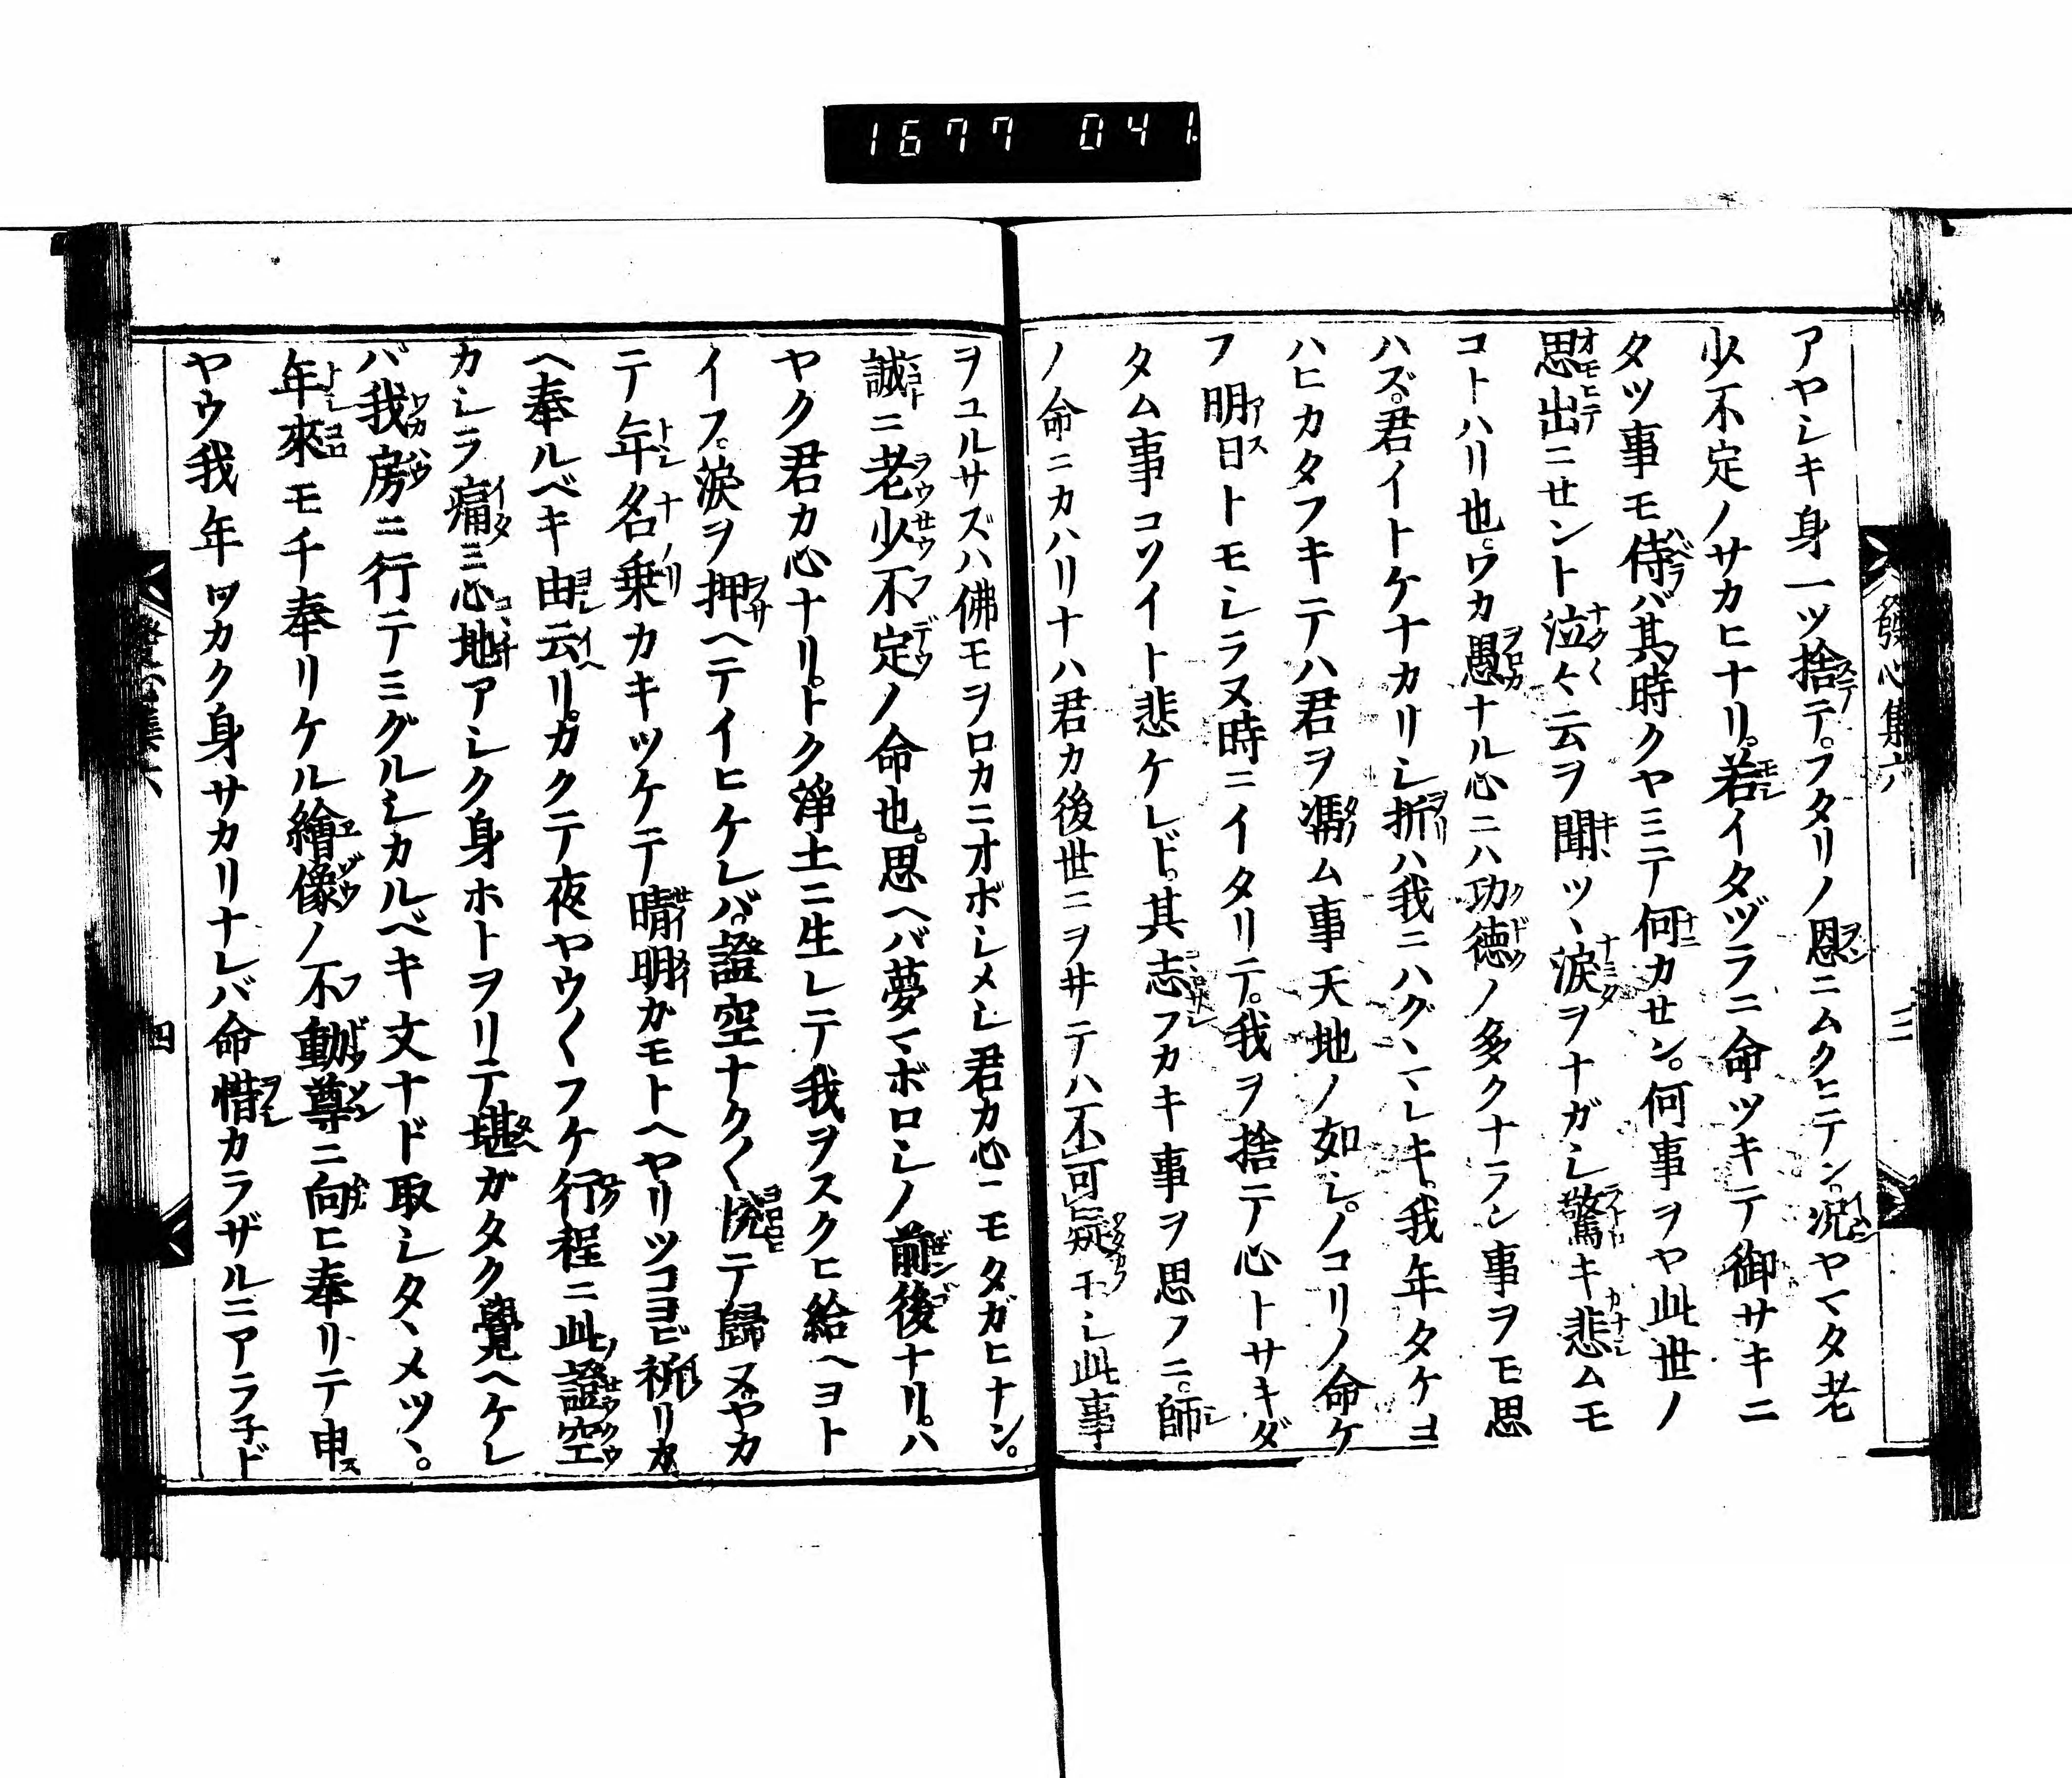 1677 041
發心集六
三
アヤシキ身一ツ捨テ。フタリノ恩ニムクヒテン。况ヤマタ老
少不定ノサカヒナリ。若イタヅラニ命ツキテ御サキニ
タツ事モ侍バ其時クヤミテ何カセン。何事ヲヤ此世ノ
思出ニセント泣々云ヲ聞ツヽ涙ヲナガシ驚キ悲ムモ
コトハリ也。ワカ愚ナル心ニハ功徳ノ多クナラン事ヲモ思
ハズ。君イトケナカリシ折ハ我ニハグヽマレキ。我年タケヨ
ハヒカタフキテハ君ヲ馮ム事天地ノ如シ。ノコリノ命ケ
フ明日トモシラヌ時ニイタリテ。我ヲ捨テ心トサキダ
タム事コソイト悲ケレド。其志フカキ事ヲ思フニ。師
ノ命ニカハリナハ君カ後世ニヲ井テハ不可疑モシ此事
ヲユルサズハ佛モヲロカニオボシメシ君カ心ニモタガヒナン。
誠ニ老少不定ノ命也。思ヘバ夢マボロシノ前後ナリ。ハ
ヤク君カ心ナリ。トク淨土ニ生レテ我ヲスクヒ給ヘヨト
イフ。涙ヲ押ヘテイヒケレバ。證空ナク〱悦テ歸ヌ。ヤカ
テ年名乗カキツケテ晴明カモトヘヤリツコヨヒ祈リカ
ヘ奉ルベキ由云リ。カクテ夜ヤウ〱フケ行程ニ此證空
カシラ痛ミ心地アシク身ホトヲリテ堪ガタク覺ヘケレ
バ我房ニ行テミグルシカルベキ文ナド取シタヽメツヽ。
年來モチ奉リケル繪像ノ不動尊ニ向ヒ奉リテ申
ヤウ我年ワカク身サカリナレバ命惜カラザルニアラ子ド
發心集六
四